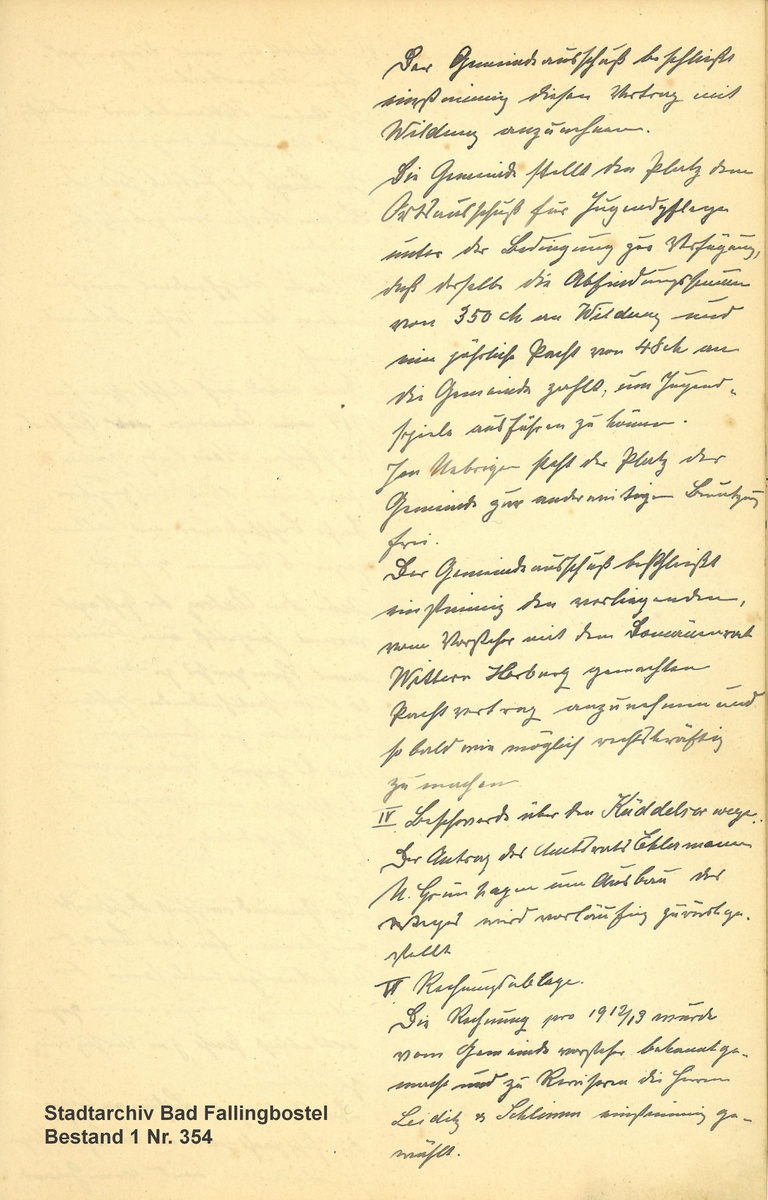 Der Gemeindeausschuß beschließt
einstimmig diesen Vertrag mit
Wildung anzunehmen.
Die Gemeinde stellt den Platz dem
Ortsausschuß für Jugendpflege
unter der Bedingung zur Verfügung,
daß derselbe die Abfindungssumme
von 350 M an Wildung und
eine jährliche Pacht von 48 M an
die Gemeinde zahlt, um Jugend-
spiele ausführen zu können.
Im Uebrigen steht der Platz der
Gemeinde zur anderweitigen Benutzung
frei.
Der Gemeindeausschuß beschließt
einstimmig den vorliegenden,
vom Vorsteher mit dem Domänenrat
Harburg gemachten
Pachtvertrag anzunehmen und
so bald wie möglich rechtskräftig
zu machen
IV Beschwerde über den Küddelser wege.
Der Antrag des Amtsrats Ehlermann
um Ausbau des
Weges wird vorläufig zurückge-
stellt
VI Rechnungsablage.
Die Rechnung pro 1912/13 wurde
vom Gemeindevorsteher bekanntge-
macht und zu Revisoren die Herren
Leiditz & Schlimm einstimmig ge-
wählt.
Stadtarchiv Bad Fallingbostel
Bestand 1 Nr. 354